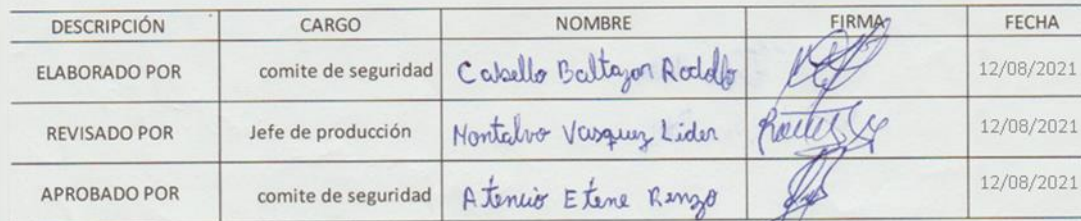 DESCRIPCIÓN CARGO NOMBRE FIRMA FECHA
ELABORADO POR comite de seguridad Cabello Baltazar Rodolfo 12/08/2021
REVISADO POR Jefe de producción Montalvo Vasquez Lider 12/08/2021
APROBADO POR comite de seguridad Atencio Etene Renzo 12/08/2021